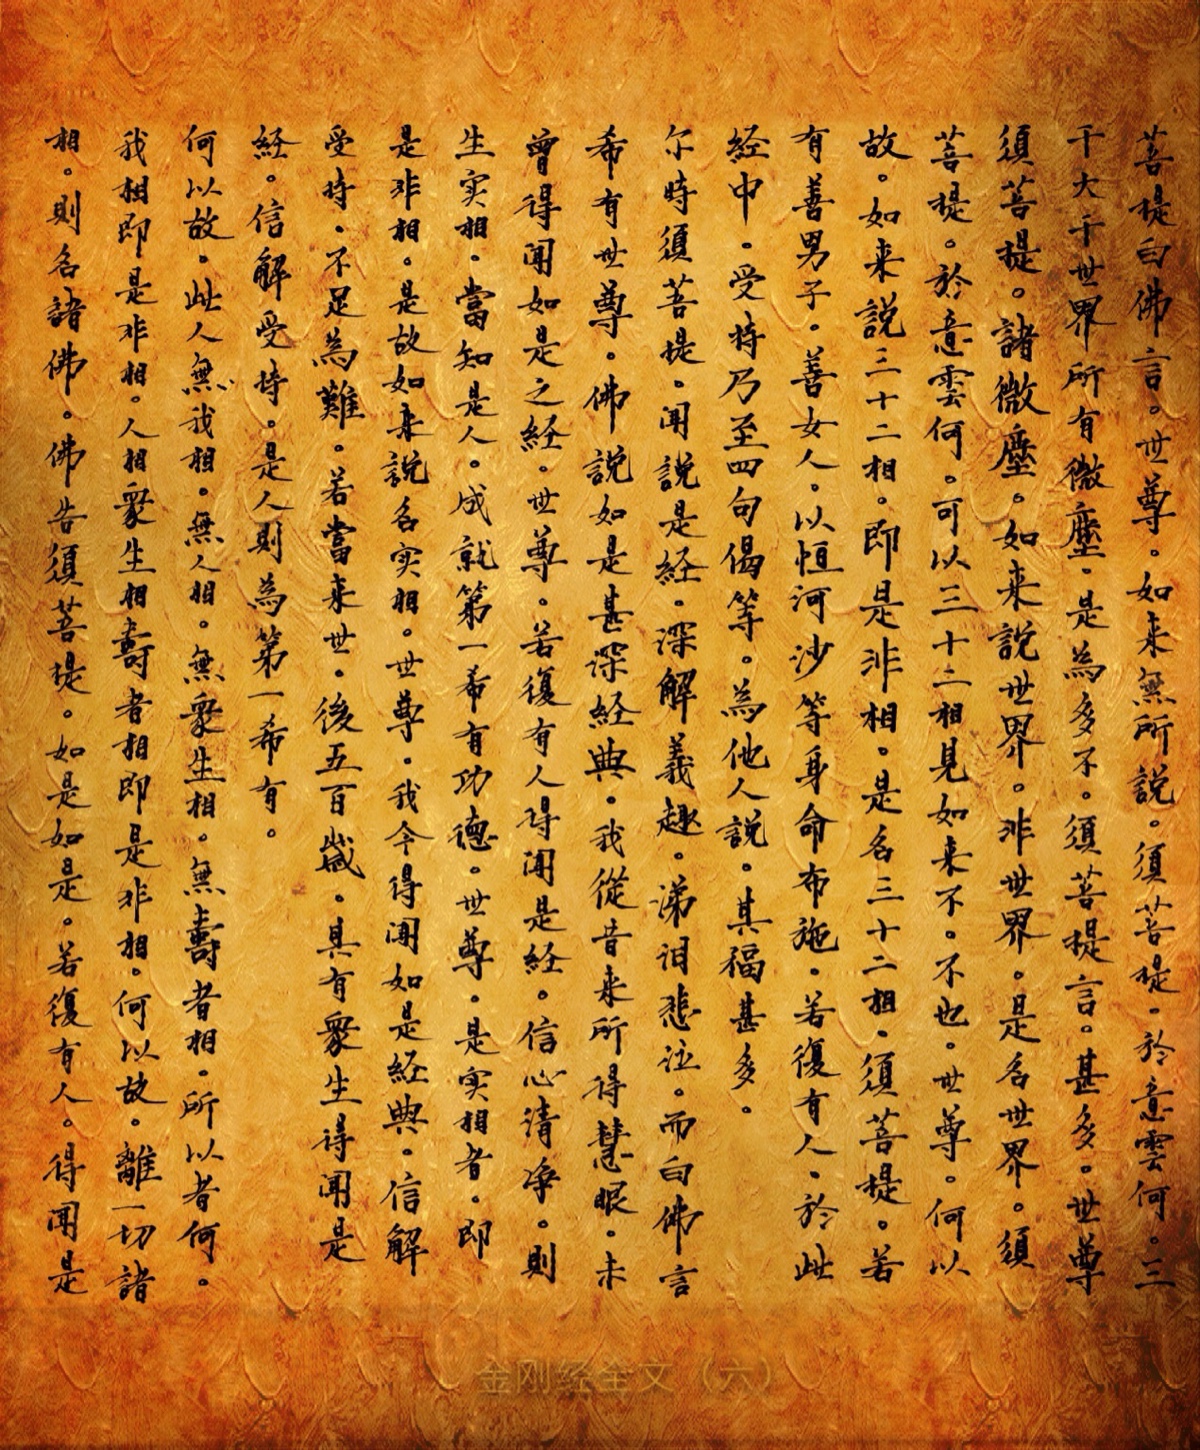 菩提白佛言。世尊。如来無所説。須菩提。於意雲何。三
千大千世界所有微塵。是為多不。須菩提言。甚多。世尊
須菩提。諸微塵。如来説世界。非世界。是名世界。須
菩提。於意雲何。可以三十二相見如来不。不也。世尊。何以
故。如来説三十二相。即是非相。是名三十二相。須菩提。若
有善男子。善女人。以恒河沙等身命布施。若復有人。於此
経中。受持乃至四句偈等。為他人説。其福甚多。
尔時須菩提。聞説是経。深解義趣。涕泪悲泣。而白佛言
希有世尊。佛説如是甚深経典。我從昔来所得慧眼。未
曾得聞如是之経。世尊。若復有人得聞是経。信心清净。則
生実相。當知是人。成就第一希有功德。世尊。是実相者。即
是非相。是故如来説名实相。世尊。我今得聞如是経典。信解
受持。不足為難。若當来世。後五百歲。具有衆生得聞是
経。信解受持。是人則為第一希有。
何以故。此人無我相。無人相。無衆生相。無壽者相。所以者何。
我相即是非相。人相衆生相壽者相即是非相。何以故。離一切諸
相。則名諸佛。佛告須菩提。如是如是。若復有人。得聞是
金刚经全文（六）